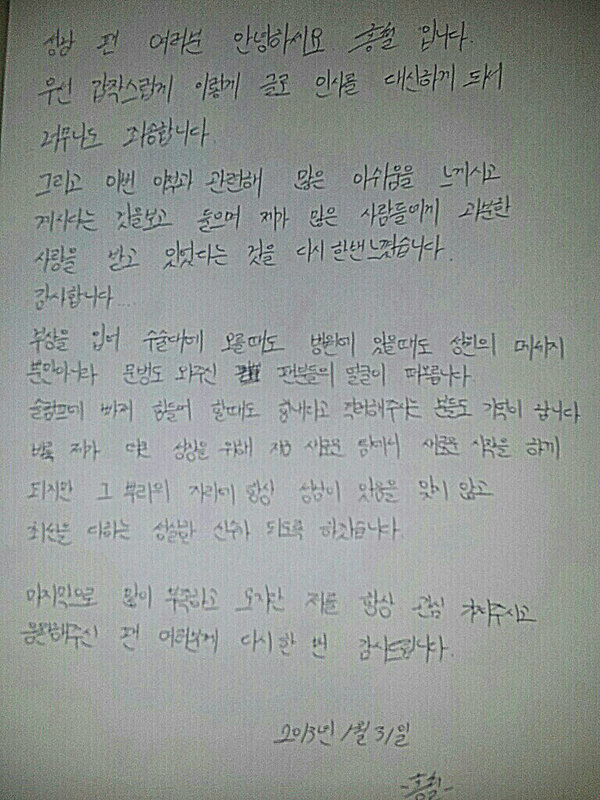 성남 팬 여러분 안녕하시요. 홍철 입니다.
우선 갑작스럽게 이렇게 글로 인사를 대신하게 되서
너무나도 죄송합니다.
그리고 이번 이적과 관련해 많은 아쉬움을 느끼시고
계시다는 것을보고 들으며 제가 많은 사람들에게 과분한
사랑을 받고 있었다는 것을 다시 한번 느꼈습니다.
감사합니다....
부상을 입어 수술대에 오를때도 병원에 있을때도 성원의 메세지
뿐만아니라 문병도 와주신 팬분들의 얼굴이 떠오릅니다
슬럼프에 빠져 힘들어 할때도 힘내라고 격려해주시는 분들도 기억이 납니다
비록 제가 더큰 성장을 위해 지금 새로운 팀에서 새로운 시작을 하게
되지만 그 뿌리의 자리에 항상 성남이 있음을 잊지 않고
최선을 다하는 성실한 선수가 되도록 하겠습니다.
마지막으로 많이 부족하고 모자란 저를 항상 관심 가져주시고
응원해주신 팬 여러분께 다시 한 번 감사드립니다.
2013년 1월 31일
-홍철-